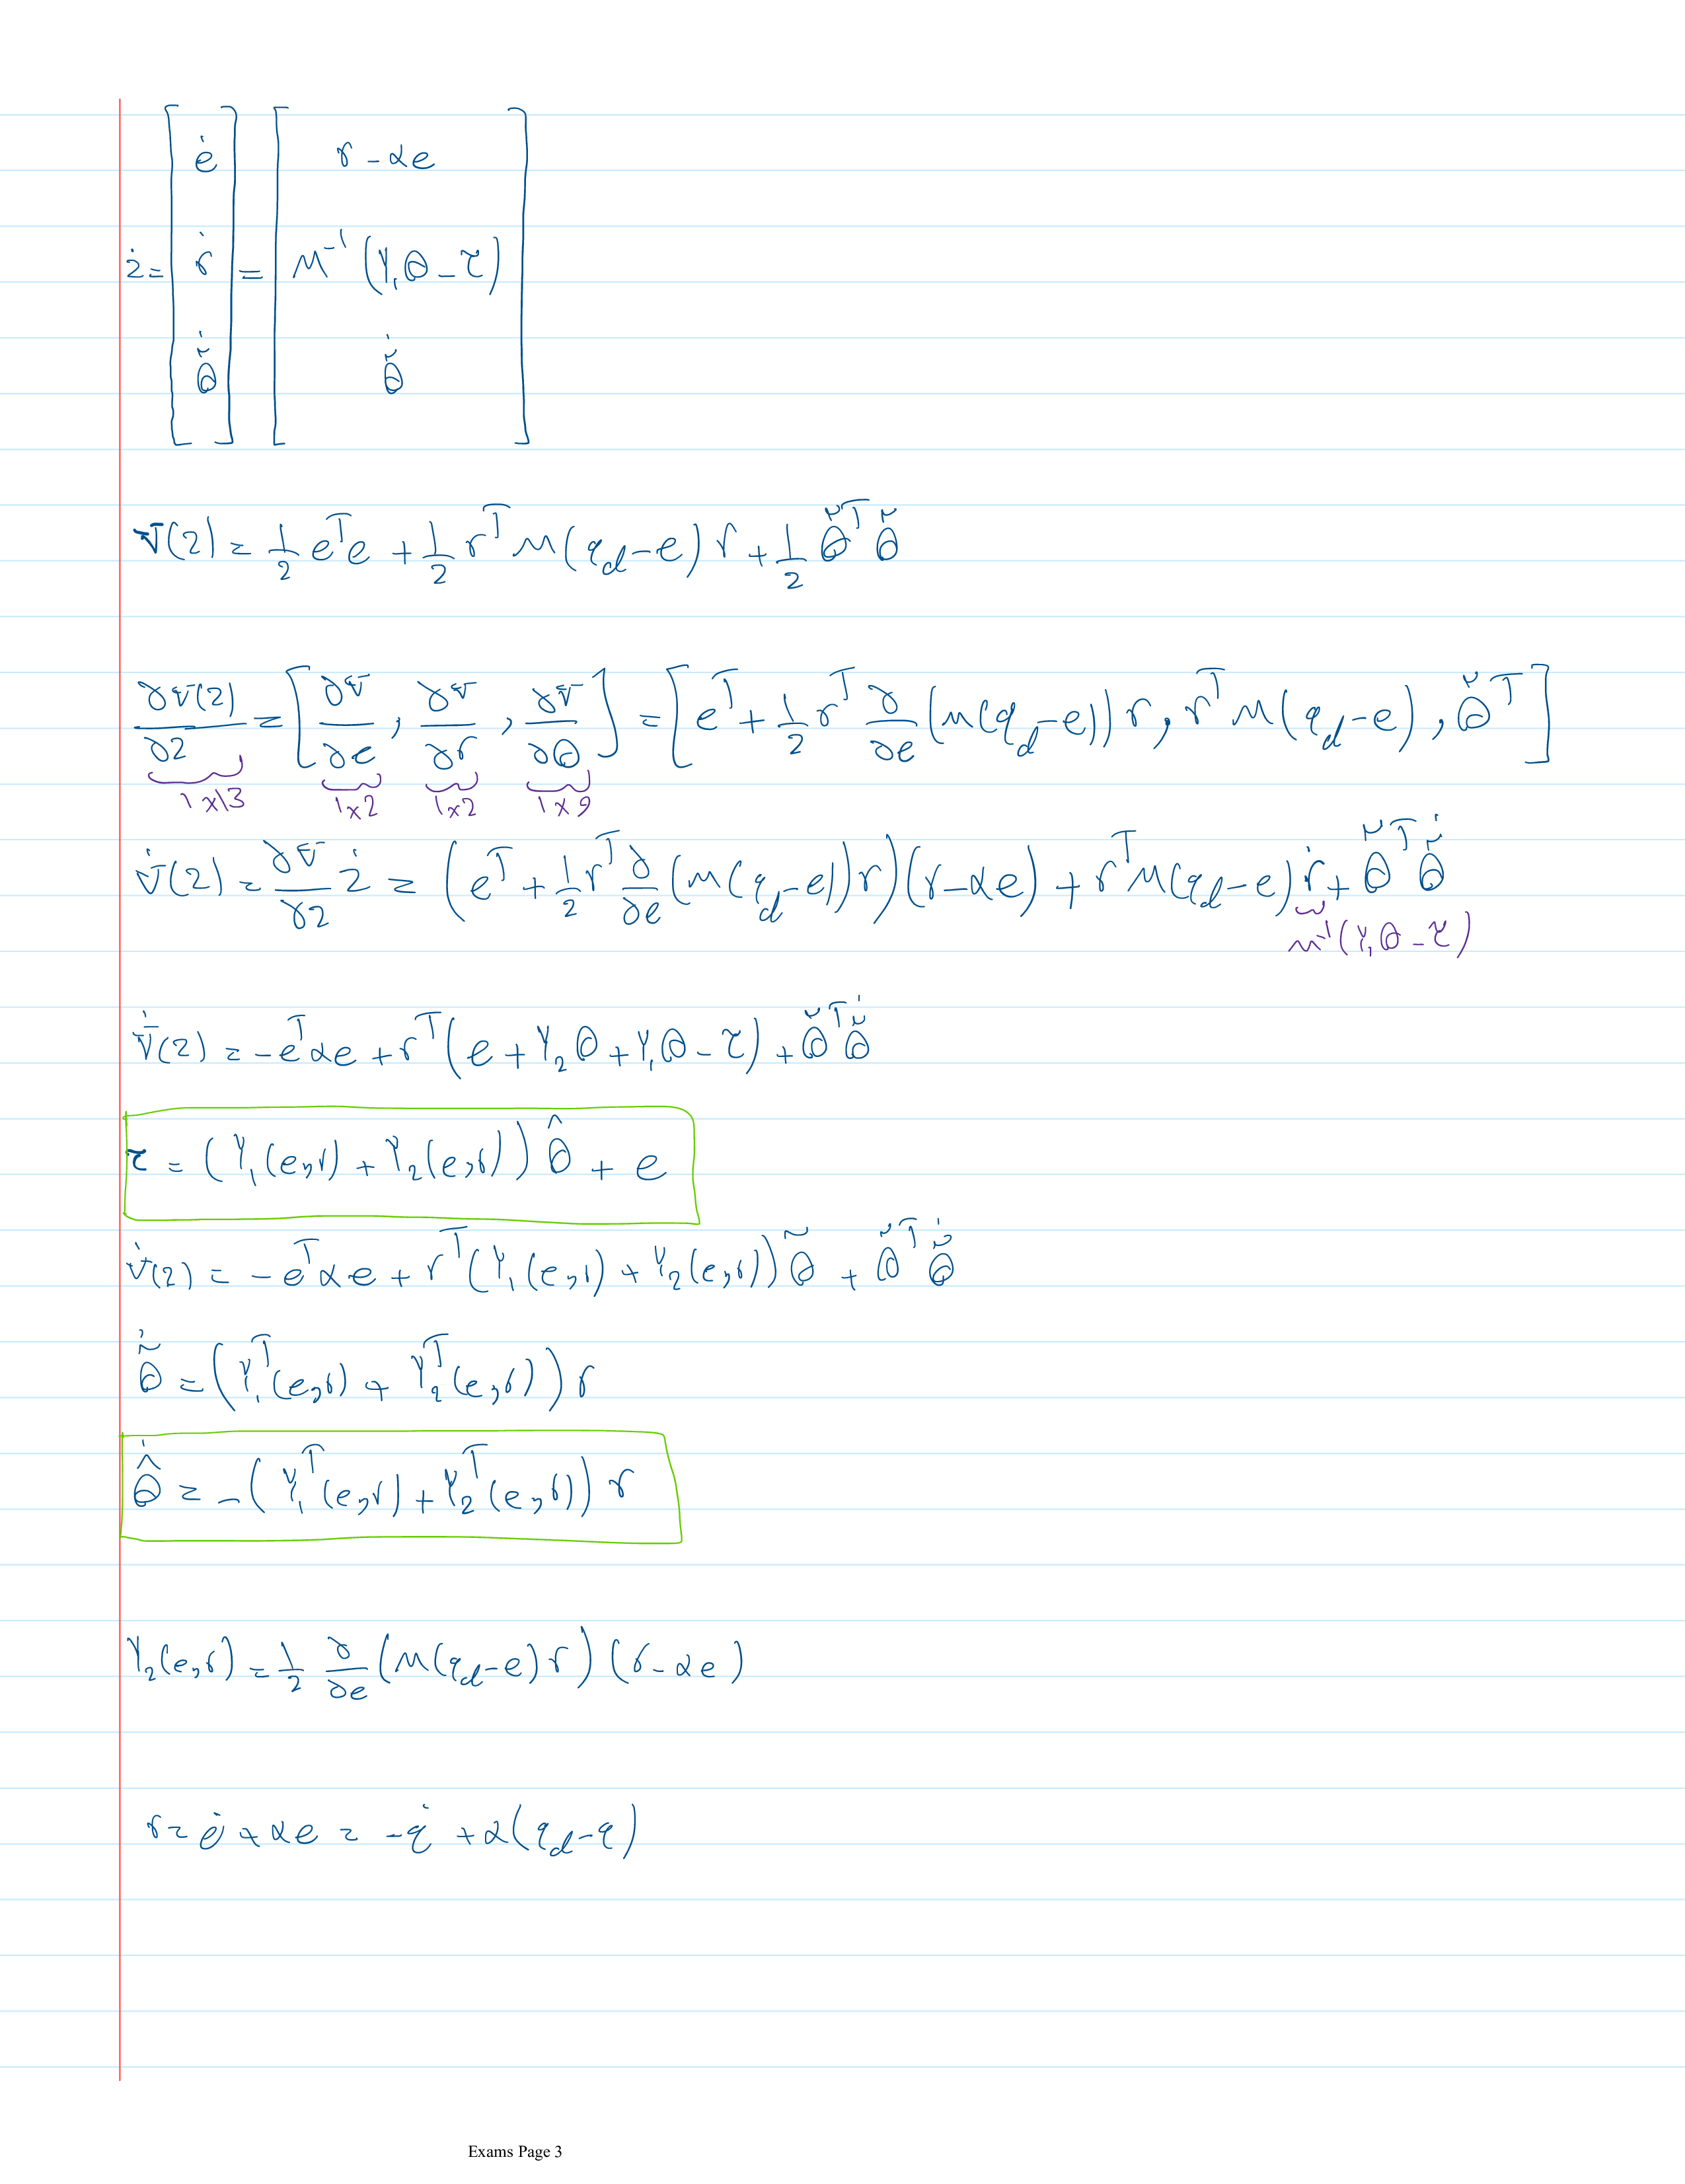 ż = [ ė ; ṙ ; θ̃̇ ] = [ r - αe ; M⁻¹(Y₁θ - τ) ; θ̃̇ ]
V(z) = 1/2 eᵀe + 1/2 rᵀ M(q_d - e) r + 1/2 θ̃ᵀ θ̃
∂V(z)/∂z = [ ∂V/∂e , ∂V/∂r , ∂V/∂θ ] = [ eᵀ + 1/2 rᵀ ∂/∂e (M(q_d - e)) r , rᵀ M(q_d - e) , θ̃ᵀ ]
1×13 1×2 1×2 1×9
V̇(z) = ∂V/∂z ż = (eᵀ + 1/2 rᵀ ∂/∂e (M(q_d - e)) r)(r - αe) + rᵀ M(q_d - e) ṙ + θ̃ᵀ θ̃̇
M⁻¹(Y₁θ - τ)
V̇(z) = -eᵀαe + rᵀ(e + Y₂θ + Y₁θ - τ) + θ̃ᵀ θ̃̇
τ = (Y₁(e,r) + Y₂(e,r)) θ̂ + e
V̇(z) = -eᵀαe + rᵀ(Y₁(e,r) + Y₂(e,r)) θ̃ + θ̃ᵀ θ̃̇
θ̃̇ = (Y₁ᵀ(e,r) + Y₂ᵀ(e,r)) r
θ̂̇ = -(Y₁ᵀ(e,r) + Y₂ᵀ(e,r)) r
Y₂(e,r) = 1/2 ∂/∂e (M(q_d - e) r) (r - αe)
r = ė + αe = -q̇ + α(q_d - q)
Exams Page 3